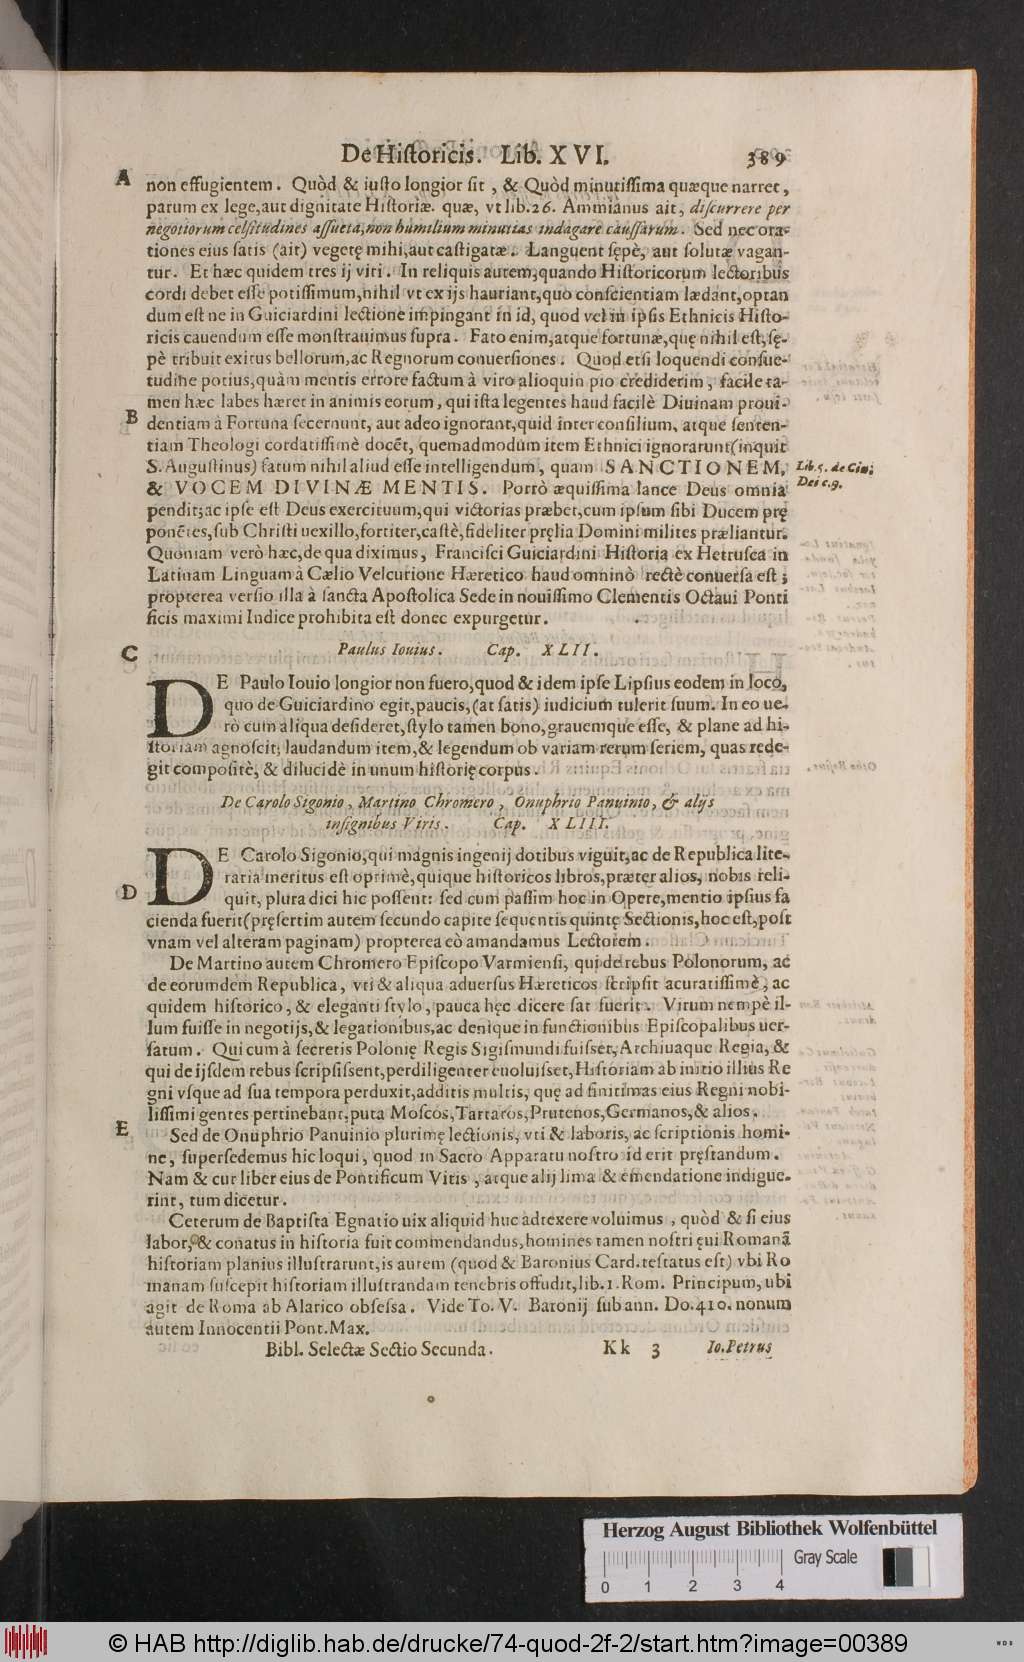 De Historicis. Lib. XVI. 389
A
non effugientem. Quòd & iusto longior sit, & Quòd minutissima quæque narret,
parum ex lege, aut dignitate Historiæ. quæ, vt lib. 26. Ammianus ait, discurrere per
negotiorum celsitudines assueta, non humilium minutias indagare caussarum. Sed nec ora-
tiones eius satis (ait) vegetę mihi, aut castigatæ. Languent sępè, aut solutæ vagan-
tur. Et hæc quidem tres ij viri. In reliquis autem, quando Historicorum lectoribus
cordi debet esse potissimum, nihil vt ex ijs hauriant, quo conscientiam lædant, optan
dum est ne in Guiciardini lectione impingant in id, quod vel in ipsis Ethnicis Histo-
ricis cauendum esse monstrauimus supra. Fato enim, atque fortunæ, quę nihil est, sę-
pè tribuit exitus bellorum, ac Regnorum conuersiones. Quod etsi loquendi consue-
tudine potius, quàm mentis errore factum à viro alioquin pio crediderim, facile ta-
men hæc labes hæret in animis eorum, qui ista legentes haud facilè Diuinam proui-
B
dentiam à Fortuna secernunt, aut adeo ignorant, quid inter consilium, atque senten-
tiam Theologi cordatissimè docēt, quemadmodum item Ethnici ignorarunt (inquit
S. Augustinus) fatum nihil aliud esse intelligendum, quam SANCTIONEM,
Lib. 5. de Ciui;
& VOCEM DIVINÆ MENTIS. Porrò æquissima lance Deus omnia
Dei c. 9.
pendit; ac ipse est Deus exercituum, qui victorias præbet, cum ipsum sibi Ducem prę
ponētes, sub Christi uexillo, fortiter, castè, fideliter pręlia Domini milites præliantur.
Quoniam verò hæc, de qua diximus, Francisci Guiciardini Historia ex Hetrusca in
Latinam Linguam à Cælio Velcurione Hæretico haud omninò rectè conuersa est;
propterea versio illa à sancta Apostolica Sede in nouissimo Clementis Octaui Ponti
ficis maximi Indice prohibita est donec expurgetur.
C
Paulus Iouius. Cap. XLII.
DE Paulo Iouio longior non fuero, quod & idem ipse Lipsius eodem in loco,
quo de Guiciardino egit, paucis, (at satis) iudicium tulerit suum. In eo ue-
rò cum aliqua desideret, stylo tamen bono, grauemque esse, & plane ad hi-
storiam agnoscit; laudandum item, & legendum ob variam rerum seriem, quas rede-
git compositè, & dilucidè in unum historię corpus.
De Carolo Sigonio, Martino Chromero, Onuphrio Panuinio, & alijs
insignibus Viris. Cap. XLIII.
DE Carolo Sigonio, qui magnis ingenij dotibus viguit, ac de Republica lite-
raria meritus est optimè, quique historicos libros, præter alios, nobis reli-
D
quit, plura dici hic possent: sed cum passim hoc in Opere, mentio ipsius fa
cienda fuerit (pręsertim autem secundo capite sequentis quintę Sectionis, hoc est, post
vnam vel alteram paginam) propterea eò amandamus Lectorem.
De Martino autem Chromero Episcopo Varmiensi, qui de rebus Polonorum, ac
de eorumdem Republica, vti & aliqua aduersus Hæreticos scripsit acuratissimè, ac
quidem historico, & eleganti stylo, pauca hęc dicere sat fuerit. Virum nempè il-
lum fuisse in negotijs, & legationibus, ac denique in functionibus Episcopalibus uer-
satum. Qui cum à secretis Polonię Regis Sigismundi fuisset, Archiuaque Regia, &
qui de ijsdem rebus scripsissent, perdiligenter euoluisset, Historiam ab initio illius Re
gni vsque ad sua tempora perduxit, additis multis, quę ad finitimas eius Regni nobi-
lissimi gentes pertinebant, puta Moscos, Tartaros, Prutenos, Germanos, & alios.
E
Sed de Onuphrio Panuinio plurimę lectionis, vti & laboris, ac scriptionis homi-
ne, supersedemus hic loqui, quod in Sacro Apparatu nostro id erit pręstandum.
Nam & cur liber eius de Pontificum Vitis, atque alij lima & emendatione indigue-
rint, tum dicetur.
Ceterum de Baptista Egnatio uix aliquid huc adtexere voluimus, quòd & si eius
labor, & conatus in historia fuit commendandus, homines tamen nostri ęui Romanā
historiam planius illustrarunt, is autem (quod & Baronius Card. testatus est) vbi Ro
manam suscepit historiam illustrandam tenebris offudit, lib. 1. Rom. Principum, ubi
agit de Roma ab Alarico obsessa. Vide To. V. Baronij sub ann. Do. 410. nonum
autem Innocentii Pont. Max.
Bibl. Selectæ Sectio Secunda. Kk 3 Io. Petrus
Herzog August Bibliothek Wolfenbüttel
Gray Scale
0 1 2 3 4
© HAB http://diglib.hab.de/drucke/74-quod-2f-2/start.htm?image=00389